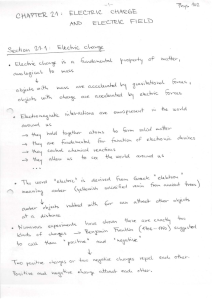 CHAPTER 21: ELECTRIC CHARGE
AND ELECTRIC FIELD
Section 21.1: Electric charge
• Electric charge is a fundamental property of matter,
analogical to mass
objects with mass are accelerated by gravitational forces,
objects with charge are accelerated by electric forces
• Electromagnetic interactions are omnipresent in the world
around us
→ they hold together atoms to form solid matter
→ they are fundamental for function of electronic devices
→ they control chemical reactions
→ they allow us to see the world around us
...
• The word "electric" is derived from Greek "elektron"
meaning amber
amber objects rubbed with fur can attract other objects
at a distance
• Numerous experiments have shown there are exactly two
kinds of charges → Benjamin Franklin suggested
to call them "positive" and "negative"
Two positive charges or two negative charges repel each other.
Positive and negative charge attract each other.